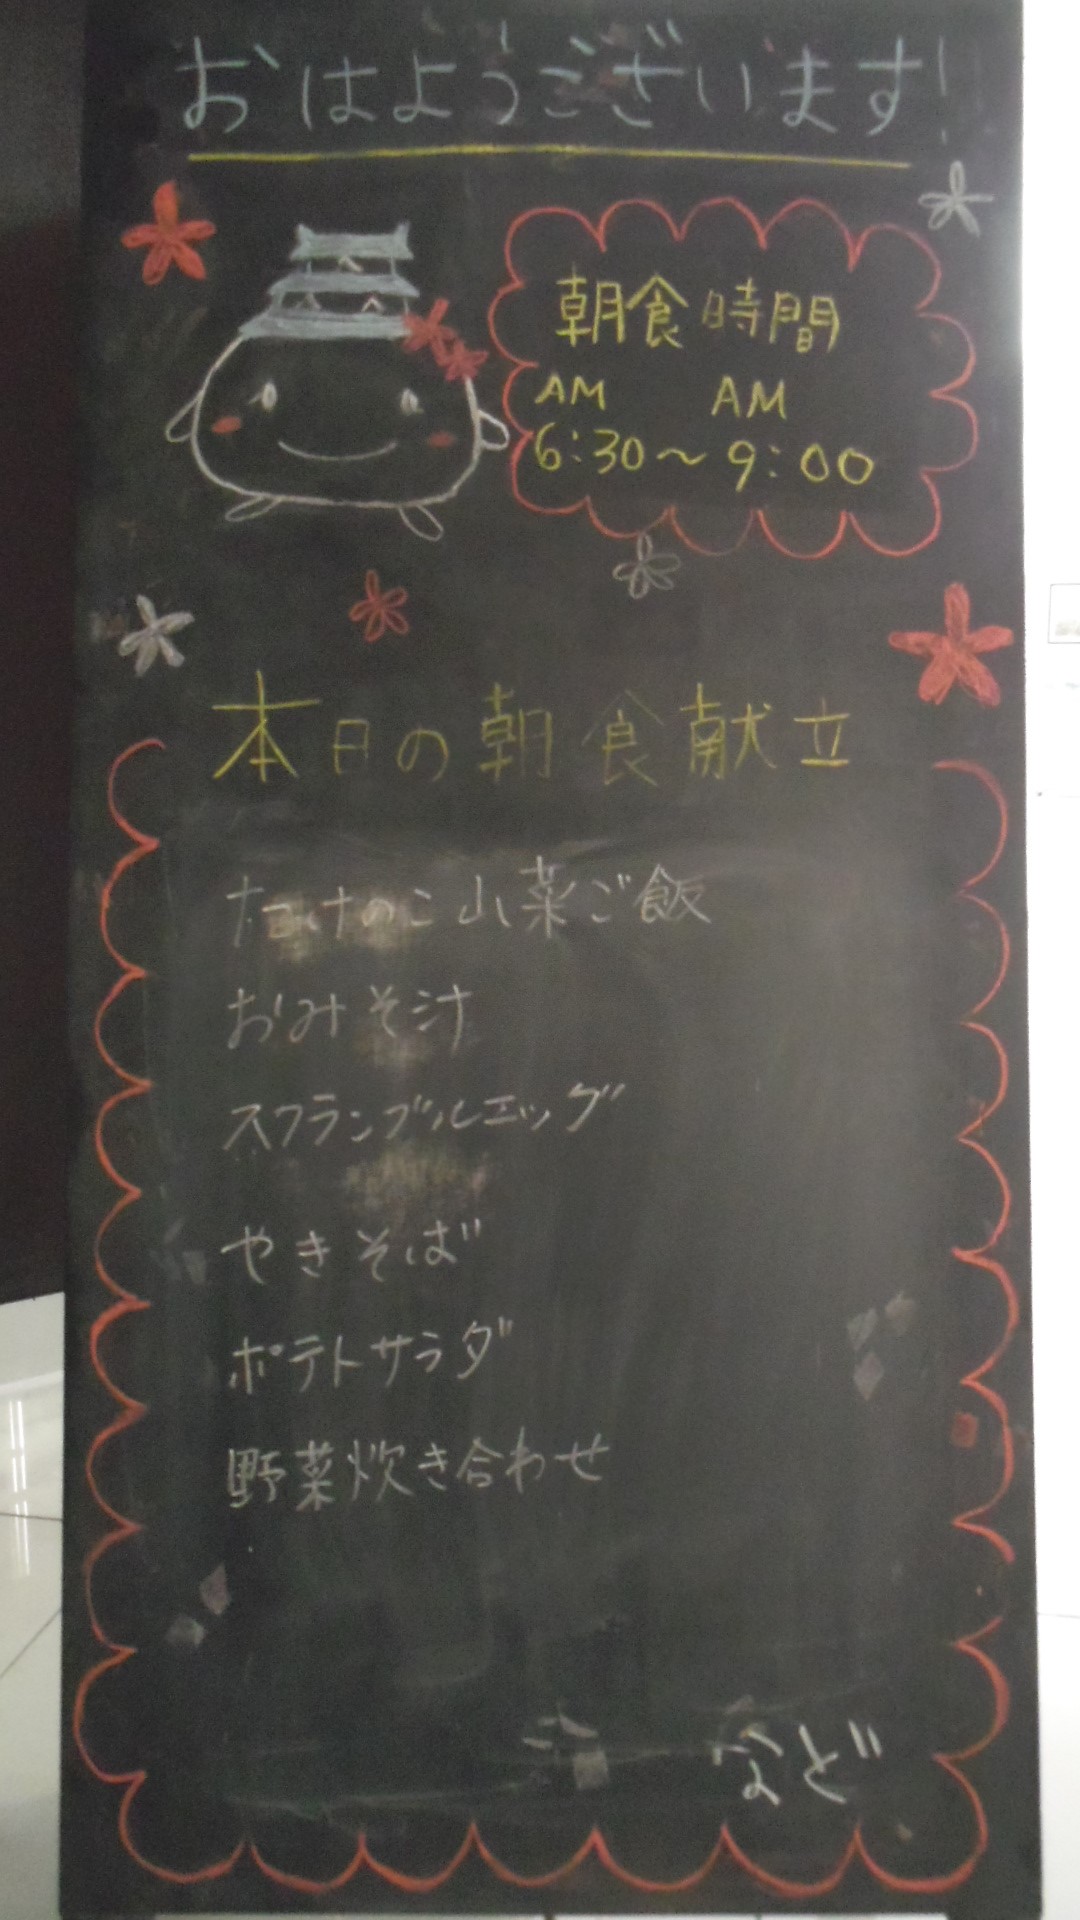 おはようございます!
朝食時間
AM AM
6:30〜9:00
本日の朝食献立
たけのこ山菜ご飯
おみそ汁
スクランブルエッグ
やきそば
ポテトサラダ
野菜炊き合わせ
など